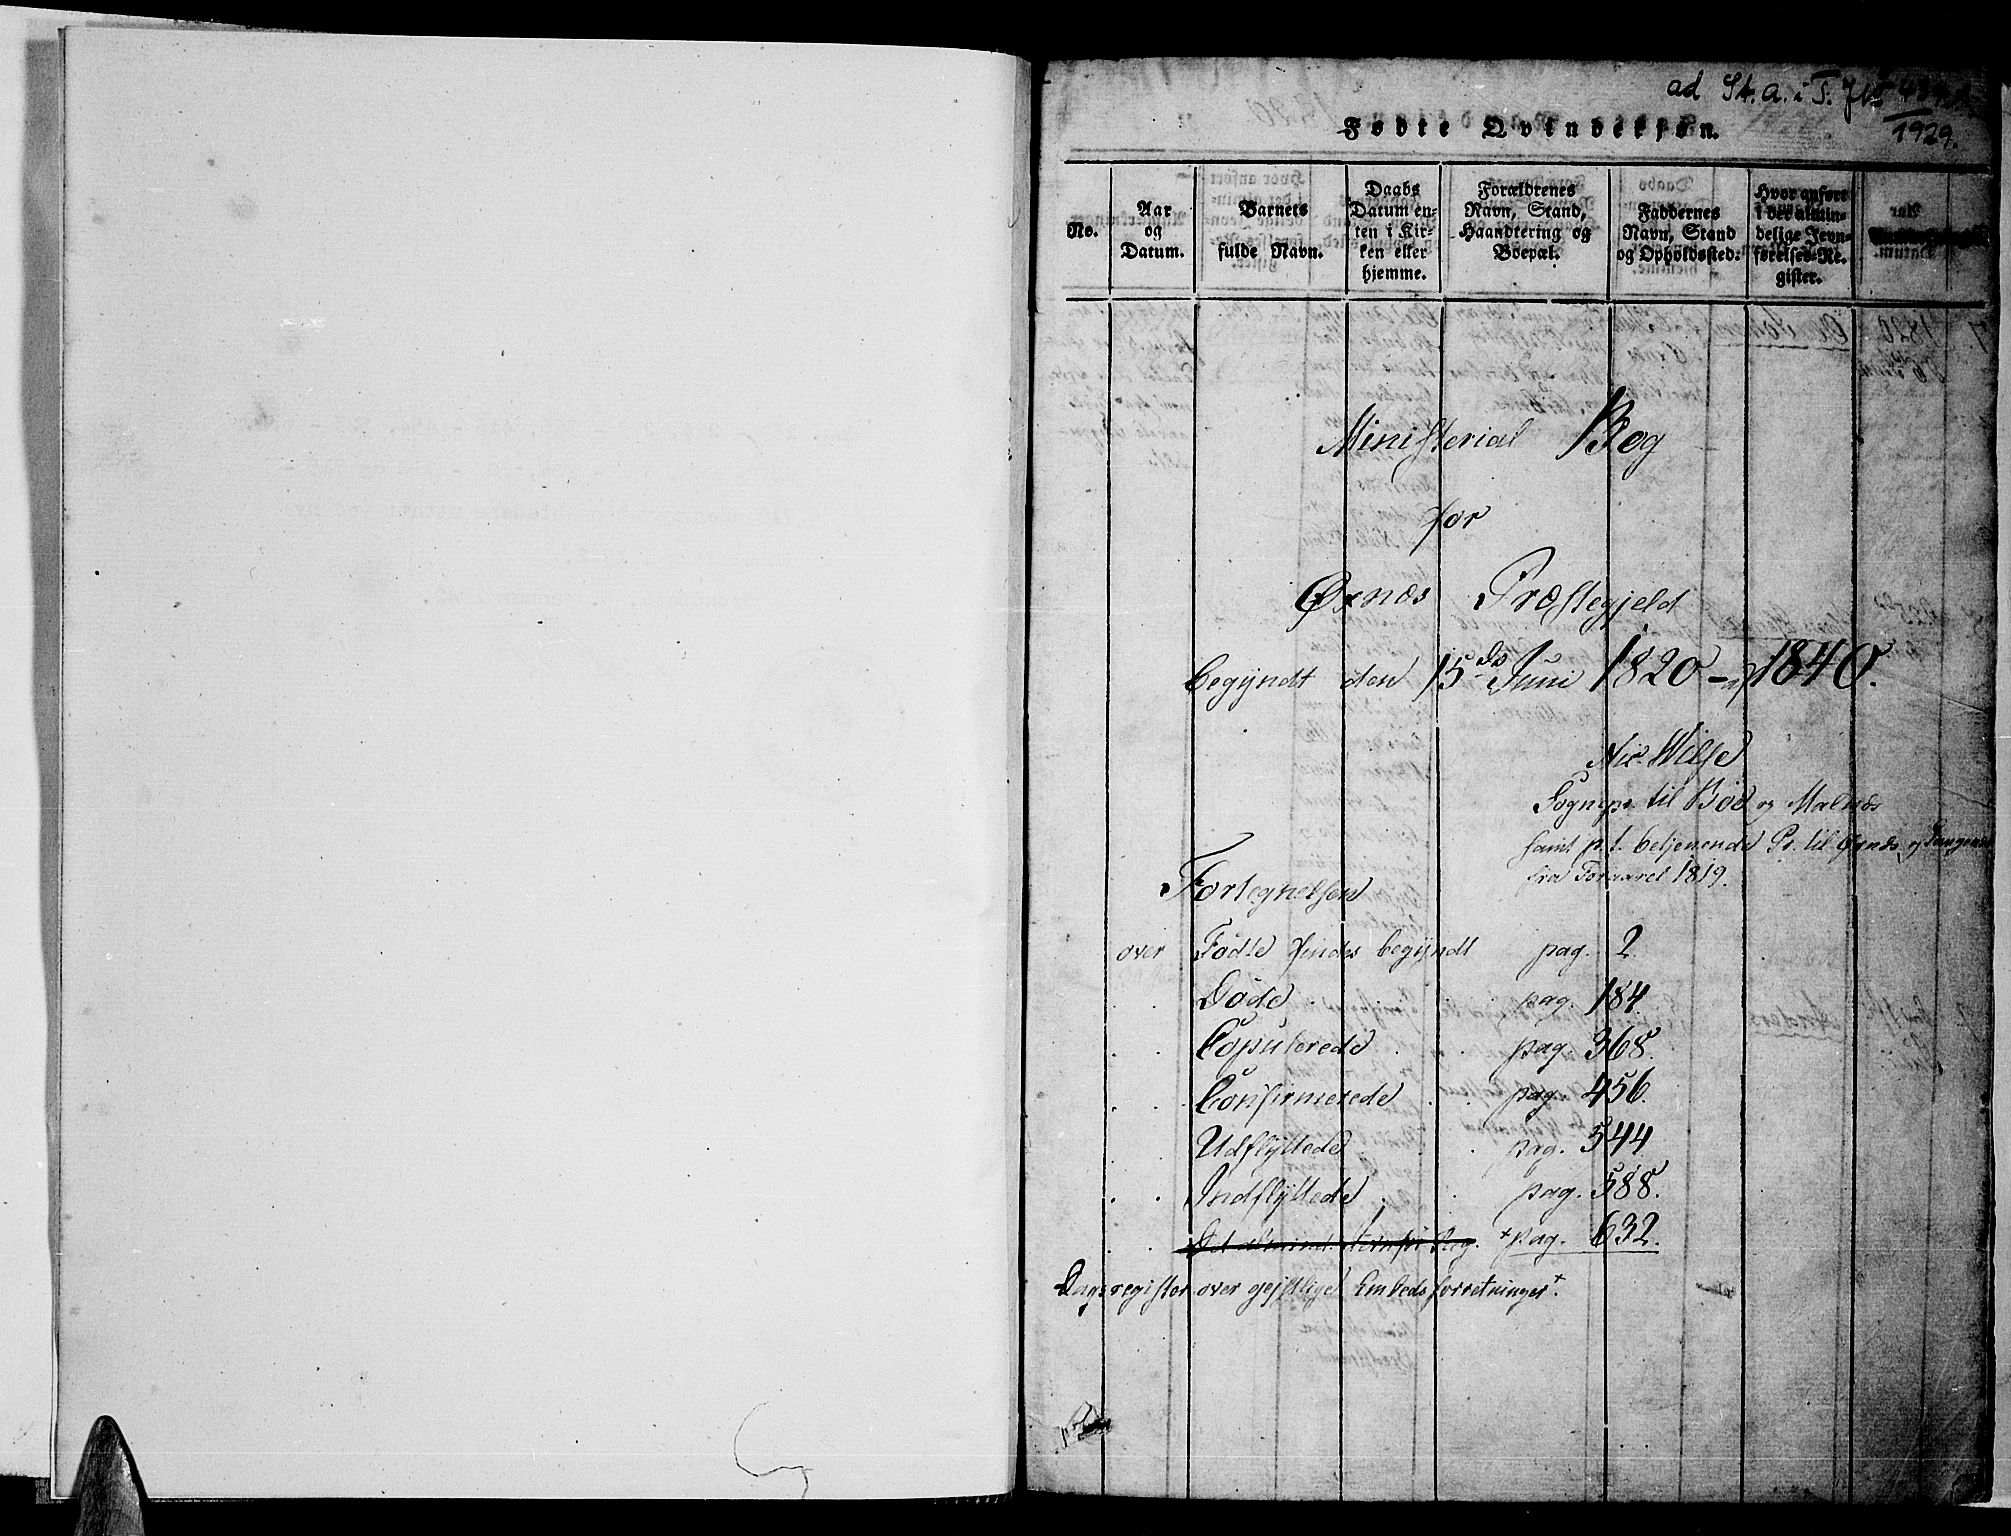 ad St. A. i T. Jno
1929.
Fødte Qvindekjøn.
No.
Aar og Datum.
Barnets fulde Navn.
Daabs Datum enten i Kirken eller hjemme.
Forældrenes Navn, Stand, Haandtering og Boepæl.
Faddernes Navn, Stand og Opholdssted.
Hvor anført i det almindelige Jevnførelses-Register.
Ministerial Bog
for
Øxnæs Præstegjeld
begyndt den 15de Juni 1820 - 1840.
Nic. Wilse
Sognepr. til Bøe og Malnæs
samt p. t. betjenende Pr. til Øxnæs og Langenæs
fra Foraaret 1819.
Fortegnelsen
over Fødte findes begyndt pag. 2.
. . Døde . . . pag. 184.
. . Copulerede . . pag. 368.
. . Confirmerede . . pag. 456.
. . Udflyttede . . pag. 544
. . Indflyttede . . pag. 588.
. . Det almind. Jevnf. Reg. + pag. 632.
Dagsregister over gejstlige Embedsforretninger +.